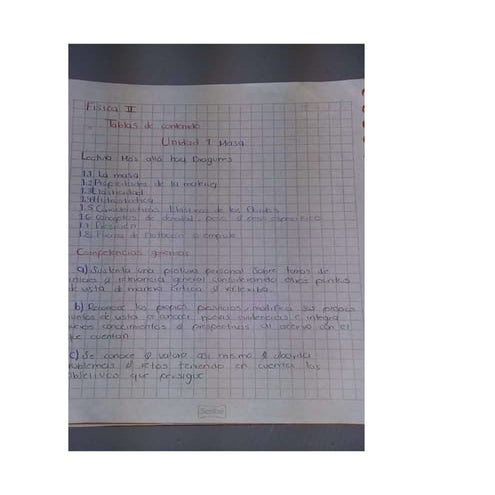 Física II
Tablas de contenido
Unidad 1 Masa
Lectura Mas alla hay Dragones
1.1 La masa
1.2 Propiedades de la materia
1.3 Elasticidad
1.4 Hidrostatica
1.5 Caracteristicas de los fluidos
1.6 conceptos de densidad, peso y peso especifico
1.7 Presion
1.8 Fuerza de flotacion o empuje
Competencias genericas
a) Sustenta una postura personal sobre temas de
interes y relevancia general considerando otros puntos
de vista de manera critica y reflexiva.
b) Reconoce los propios prejuicios, modifica sus propios
puntos de vista al conocer nuevas evidencias e integra
nuevos conocimientos y perspectivas al acervo con el
que cuentan
c) Se conoce y valora asi mismo y aborda
problemas y retos teniendo en cuenta los
objetivos que persigue
Scribe